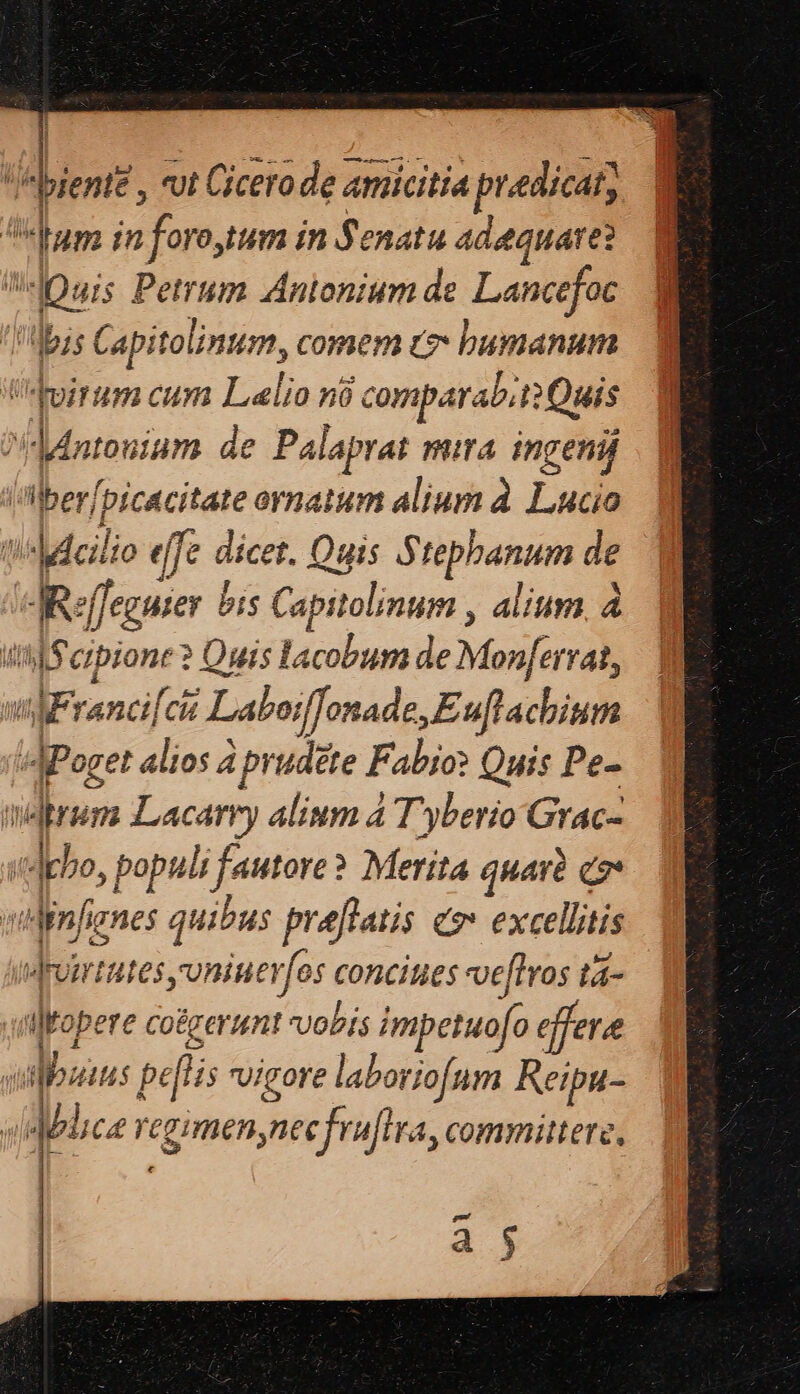 pientē, vt Cicero de amicitia prædicat,
tum in foro, tum in Senatu adæquare?
Quis Petrum Antonium de Lancefoc
bis Capitolinum, comem & humanum
virum cum Lælio nō comparabit? Quis
Antonium de Palaprat mira ingenij
perspicacitate ornatum alium à Lucio
Acilio esse dicet. Quis Stephanum de
Resseguier bis Capitolinum, alium à
Scipione? Quis Iacobum de Monferrat,
Franciscū Laboissonade, Eustachium
Poget alios à prudēte Fabio? Quis Pe-
trum Lacarry alium à Tyberio Grac-
cho, populi fautore? Merita quarè &
insignes quibus præstatis & excellitis
virtutes, vniuersos conciues vestros tā-
topere coëgerunt vobis impetuoso efferæ
huius pestis vigore laboriosum Reipu-
blicæ regimen, nec frustra, committere.
ã 5